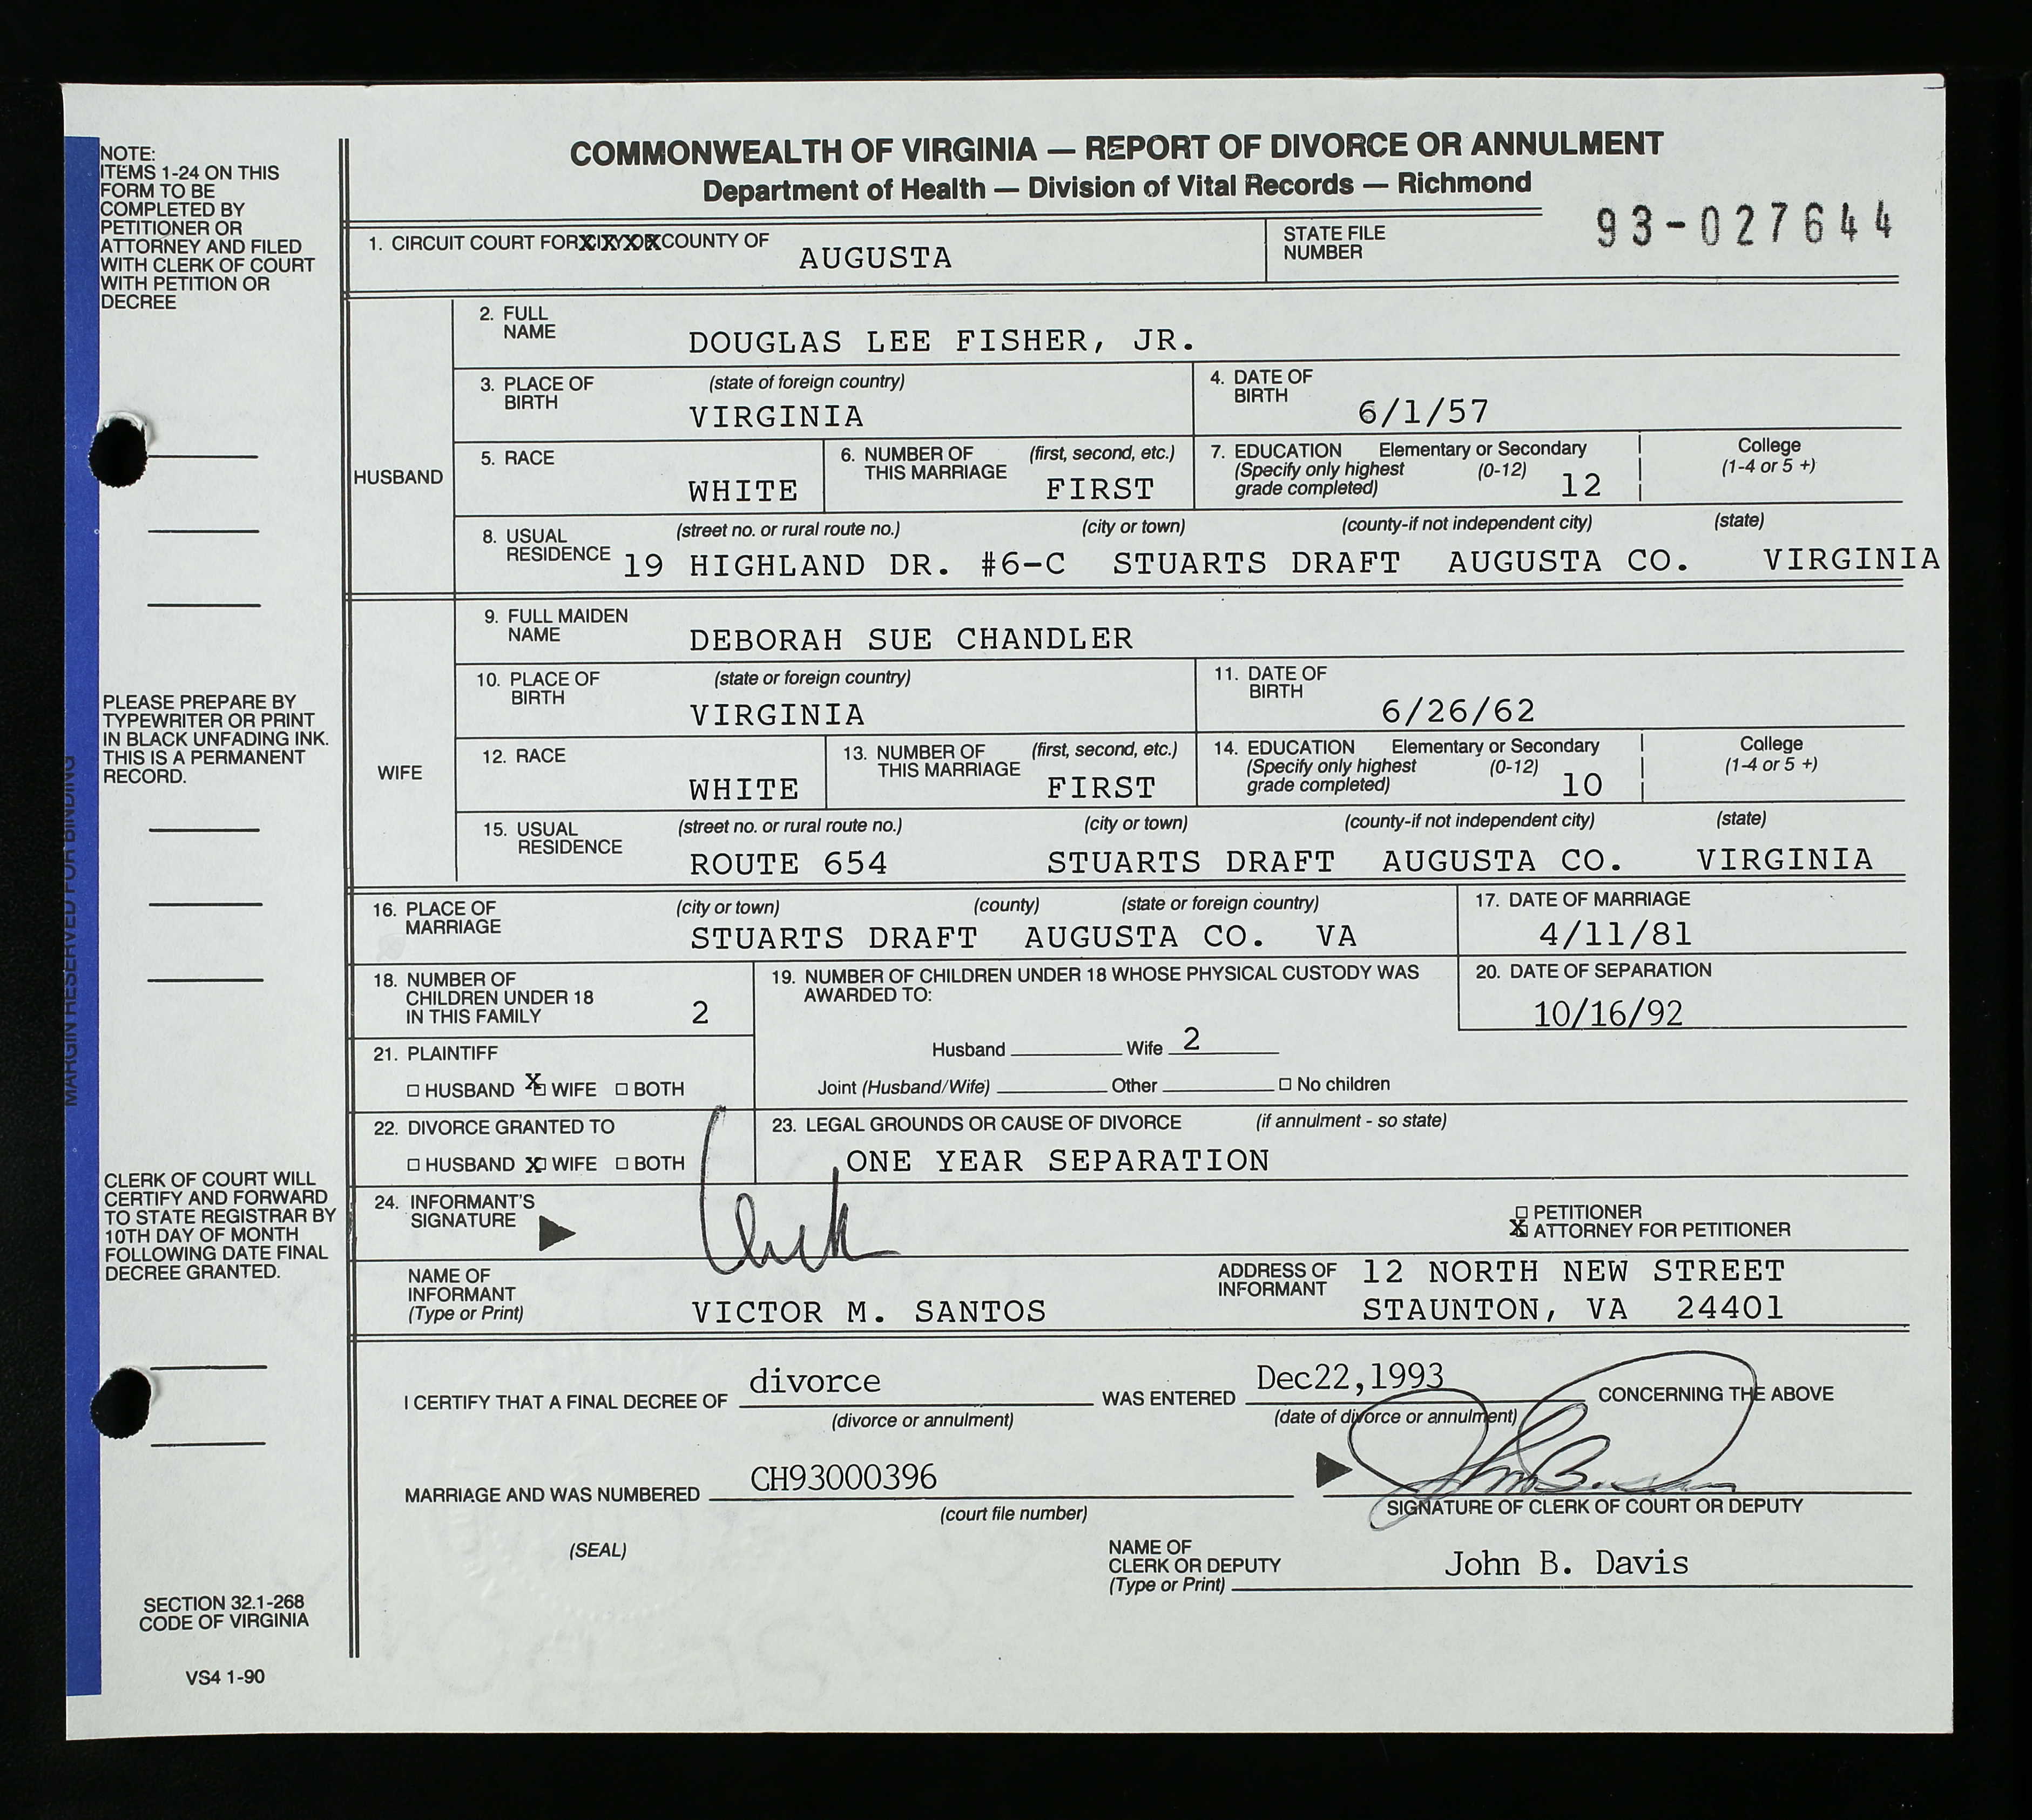 COMMONWEALTH OF VIRGINIA — REPORT OF DIVORCE OR ANNULMENT
Department of Health — Division of Vital Records — Richmond
NOTE:
ITEMS 1-24 ON THIS
FORM TO BE
COMPLETED BY
PETITIONER OR
ATTORNEY AND FILED
WITH CLERK OF COURT
WITH PETITION OR
DECREE
1. CIRCUIT COURT FOR COUNTY OF AUGUSTA
STATE FILE
NUMBER
93-027644
HUSBAND
2. FULL
NAME
DOUGLAS LEE FISHER, JR.
3. PLACE OF
BIRTH
(state of foreign country)
VIRGINIA
4. DATE OF
BIRTH
6/1/57
5. RACE
WHITE
6. NUMBER OF
THIS MARRIAGE
(first, second, etc.)
FIRST
7. EDUCATION Elementary or Secondary
(Specify only highest (0-12)
grade completed) 12
College
(1-4 or 5 +)
8. USUAL
RESIDENCE
(street no. or rural route no.) (city or town) (county-if not independent city) (state)
19 HIGHLAND DR. #6-C STUARTS DRAFT AUGUSTA CO. VIRGINIA
WIFE
9. FULL MAIDEN
NAME
DEBORAH SUE CHANDLER
10. PLACE OF
BIRTH
(state or foreign country)
VIRGINIA
11. DATE OF
BIRTH
6/26/62
12. RACE
WHITE
13. NUMBER OF
THIS MARRIAGE
(first, second, etc.)
FIRST
14. EDUCATION Elementary or Secondary
(Specify only highest (0-12)
grade completed) 10
College
(1-4 or 5 +)
15. USUAL
RESIDENCE
(street no. or rural route no.) (city or town) (county-if not independent city) (state)
ROUTE 654 STUARTS DRAFT AUGUSTA CO. VIRGINIA
PLEASE PREPARE BY
TYPEWRITER OR PRINT
IN BLACK UNFADING INK.
THIS IS A PERMANENT
RECORD.
MARGIN RESERVED FOR BINDING
16. PLACE OF
MARRIAGE
(city or town) (county) (state or foreign country)
STUARTS DRAFT AUGUSTA CO. VA
17. DATE OF MARRIAGE
4/11/81
18. NUMBER OF
CHILDREN UNDER 18
IN THIS FAMILY 2
19. NUMBER OF CHILDREN UNDER 18 WHOSE PHYSICAL CUSTODY WAS
AWARDED TO:
Husband Wife 2
Joint (Husband/Wife) Other ☐ No children
20. DATE OF SEPARATION
10/16/92
21. PLAINTIFF
☐ HUSBAND X WIFE ☐ BOTH
22. DIVORCE GRANTED TO
☐ HUSBAND X WIFE ☐ BOTH
23. LEGAL GROUNDS OR CAUSE OF DIVORCE (if annulment - so state)
ONE YEAR SEPARATION
CLERK OF COURT WILL
CERTIFY AND FORWARD
TO STATE REGISTRAR BY
10TH DAY OF MONTH
FOLLOWING DATE FINAL
DECREE GRANTED.
24. INFORMANT'S
SIGNATURE
☐ PETITIONER
X ATTORNEY FOR PETITIONER
NAME OF
INFORMANT
(Type or Print)
VICTOR M. SANTOS
ADDRESS OF
INFORMANT
12 NORTH NEW STREET
STAUNTON, VA 24401
I CERTIFY THAT A FINAL DECREE OF divorce WAS ENTERED Dec22,1993 CONCERNING THE ABOVE
(divorce or annulment) (date of divorce or annulment)
MARRIAGE AND WAS NUMBERED CH93000396
(court file number)
SIGNATURE OF CLERK OF COURT OR DEPUTY
(SEAL)
NAME OF
CLERK OR DEPUTY
(Type or Print)
John B. Davis
SECTION 32.1-268
CODE OF VIRGINIA
VS4 1-90